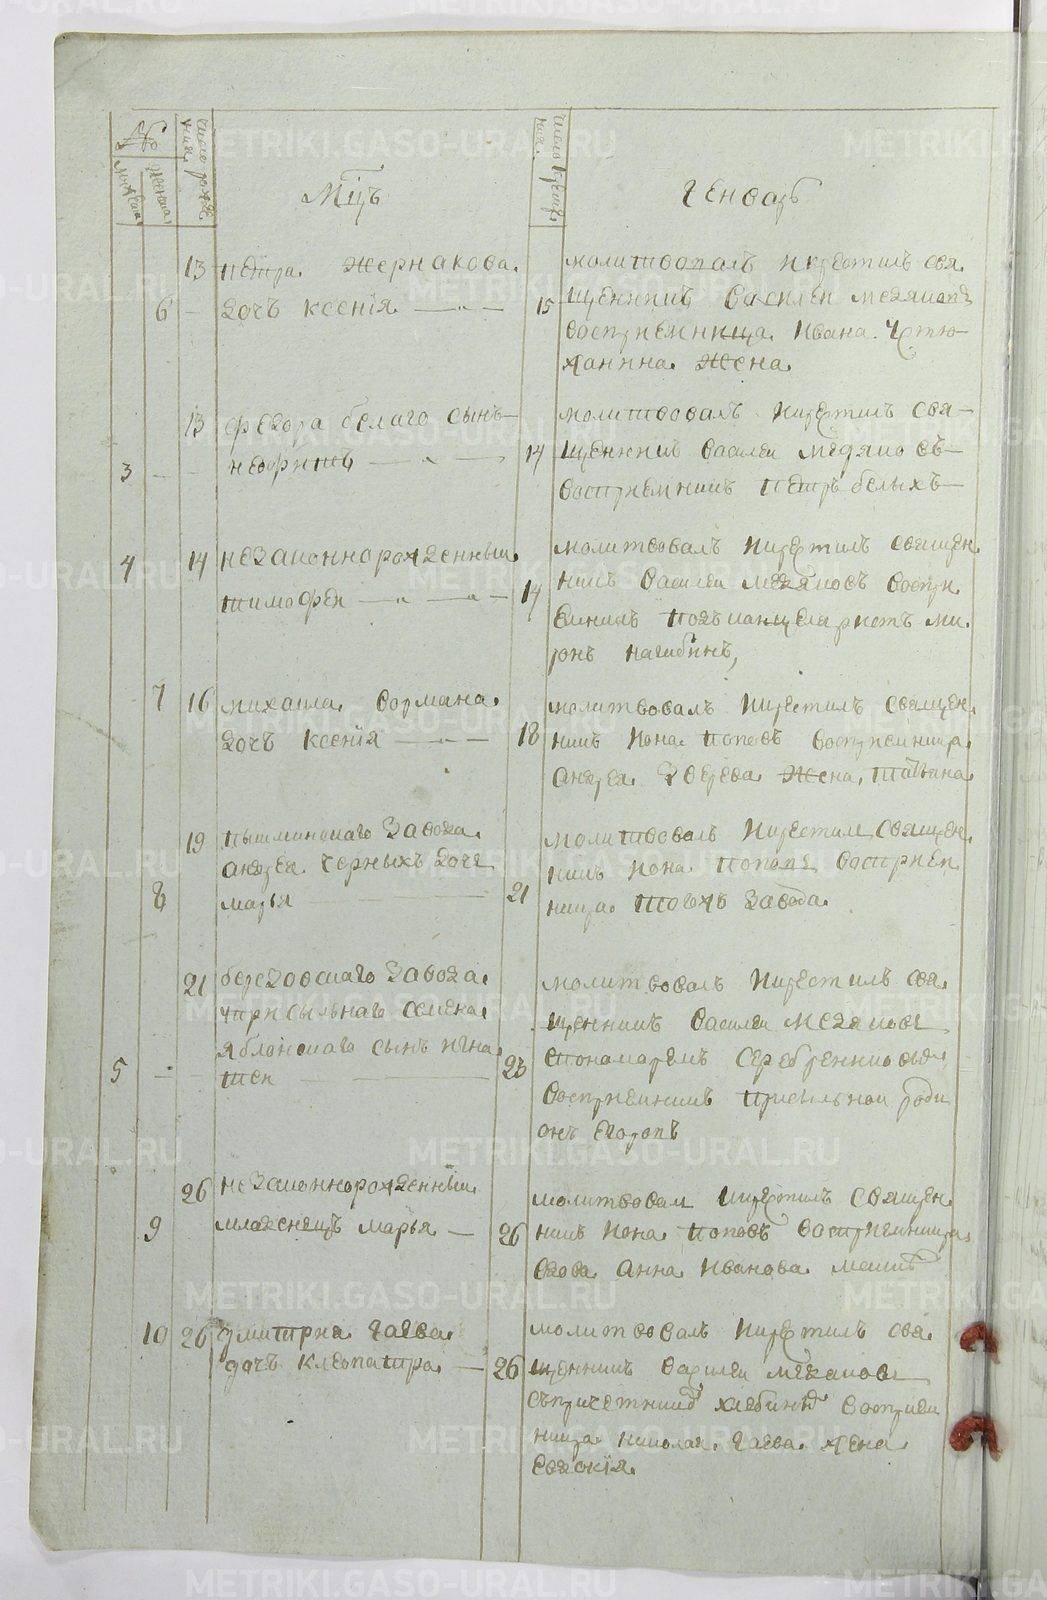 №
мужеска
женска
число рожде
нія
Мцъ
число крещ
нія
Генварь
13 петра Жернакова
6 дочь ксенія
15
молитвовалъ и крестилъ свя
щенникъ Василеи медяковъ
восприемница Ивана
ханина Жена
13 федора белаго сынъ
3
14
молитвовалъ и крестилъ свя
щенникъ Василеи медяковъ
восприемникъ петръ белыхъ
4 14 незаконнорожденныи
тимофеи
14
молитвовалъ и крестилъ священ
никъ Василеи медяковъ воспри
емникъ подъканцеляристъ ми
ронъ нагибинъ
7 16 михаила вормана
дочь ксенія
18
молитвовалъ и крестилъ священ
никъ Иона поповъ восприемница
андрея Зверева Жена, татьяна
19 пышминскаго завода
андрея черныхъ дочь
8 марья
21
молитвовалъ и крестилъ священ
никъ Иона поповъ восприем
ница тогожъ завода
21 березовскаго завода
присыльнаго семена
яблонскаго сынъ игна
5 теи
23
молитвовалъ и крестилъ свя
щенникъ василеи медяковъ
пономаремъ серебренниковы
восприемникъ присыльнои роди
онъ егоровъ
26 незаконнорожденныи
9 младенецъ марья
26
молитвовалъ и крестилъ священ
никъ Иона поповъ восприемница
вдова анна Иванова
10 26 дмитрия гаева
дочь клеопатра
26
молитвовалъ и крестилъ свя
щенникъ василеи медяковъ
съ причетником хлебиным восприем
ница николая гаева жена
евдокія
METRIKI.GASO-URAL.RU